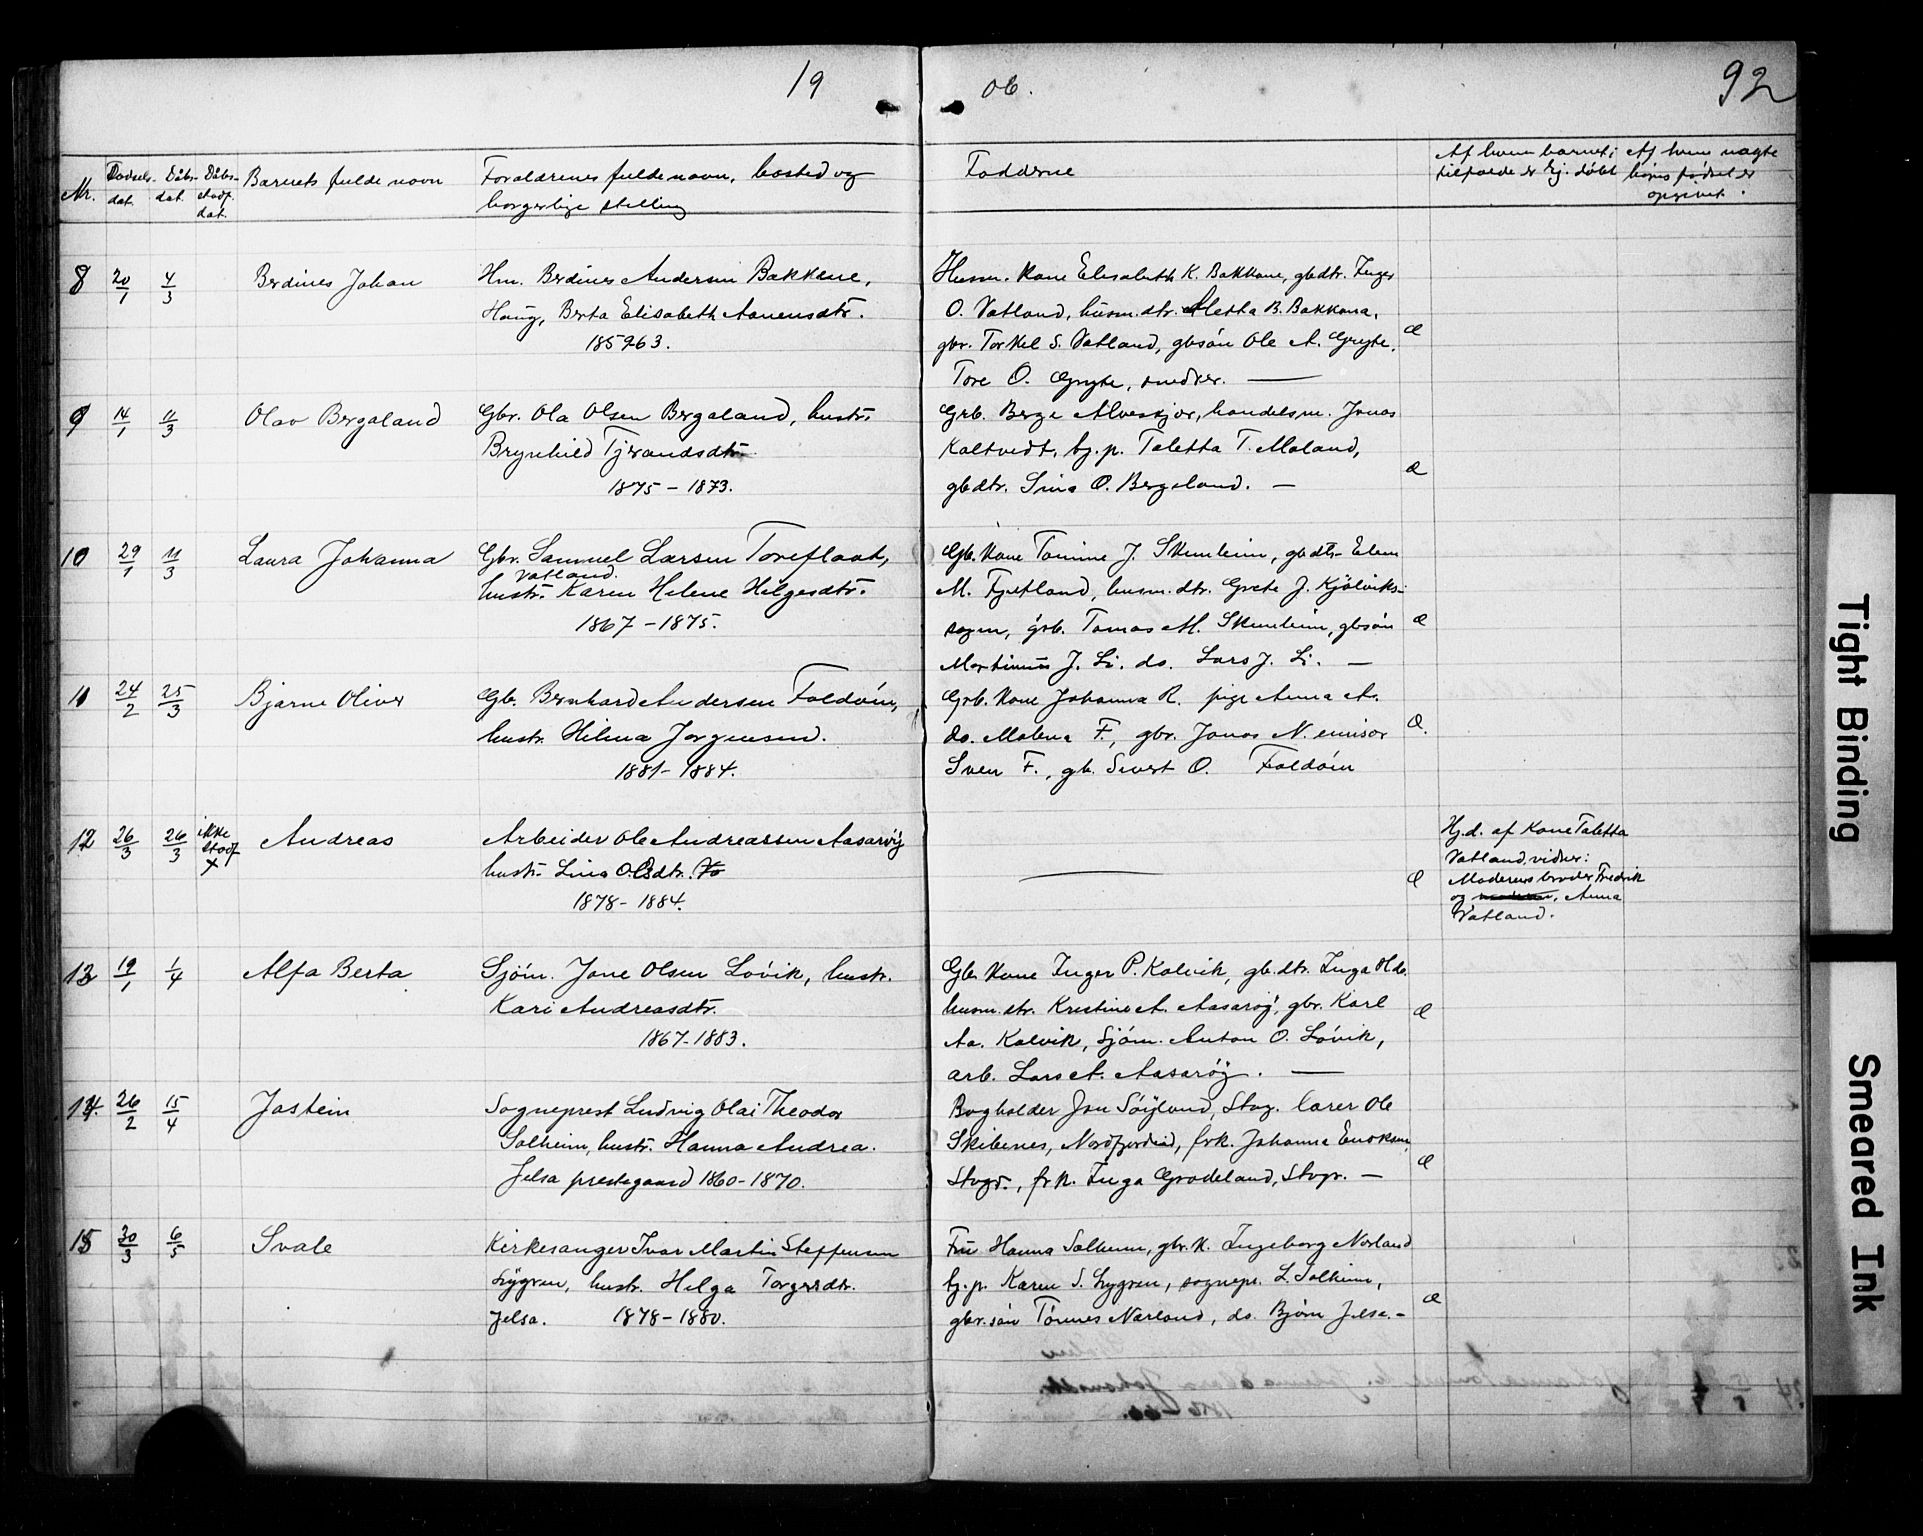 19 06. 92
Nr. Fødsels-dat. Dåbs-dat. Dåbs-stadf. dat. Barnets fulde navn Forældrenes fulde navn, bosted og borgerlige stilling Fadderne Af hvem barnet i tilfælde er hj. døbt Af hvem uægte børns fødsel er opgivet.
8 20/1 4/3 Berdines Johan
Hm. Berdines Andersen Bakkane,
Haug, Berta Elisabeth Aanensdtr.
185963.
Husm. kone Elisabeth K. Bakkane, gbdtr. Inger
O. Vatland, husm.dtr. Aletta B. Bakkana,
gbr. Torkel S. Vatland, gbsøn Ole A. Gryte,
Tore O. Gryte, snedker. —
9 14/1 11/3 Olav Bergaland
Gbr. Ola Olsen Bergaland, hustr.
Brynhild Tjerandsdtr.
1875 - 1873.
Grb. Berge Alveskjer, handelsm. Jonas
Kaltvedt, bg. p. Taletta T. Maland,
gbdtr. Sina O. Bergaland. —
10 29/1 11/3 Laura Johanna
Gbr. Samuel Larsen Toreflaat,
Vatland.
hustr. Karen Helene Helgesdtr.
1867 - 1875.
Gb. kone Tomine J. Skeuheim, gbdtr. Elen
M. Fjetland, husm.dtr. Grete J. Kjölviks-
sagen, grb. Tomas M. Skeuheim, gbsøn
Martinius J. Li. do. Lars J. Li. —
11 24/2 25/3 Bjarne Oliver
Gb. Bernhard Andersen Foldøin,
hustr. Hilma Jorgensend.
1881 - 1884.
Grb. kone Johanna R. pige Anna A.
do. Malena F., gbr. Jonas N. emisær
Sven F., gb. Sivert O. Foldøin
12 26/3 26/3 ikke stadf X Andreas
Arbeider Ole Andreassen Aasarøj
hustr. Lina Olsdtr.
1878 - 1884.
—
Hj.d. af Kone Taletta
Vatland, vidner:
Moderens broder Fredrik
og Anna
Vatland.
13 19/1 1/4 Alfa Berta
Sjøm. Jone Olsen Løvik, hustr.
Kari Andreasdtr.
1867-1883.
Gb. kone Inger P. Kalvik, gb.dtr. Inga
husm.dtr. Kristine A. Aasarøj, gbr. Karl
Aa. Kalvik, Sjøm. Anton O. Løvik,
arb. Lars A. Aasarøj. —
14 26/2 15/4 Jostein
Sogneprest Ludvig Olai Theodor
Solheim, hustr. Hanna Andrea.
Jelsa prestegaard 1860-1870.
Bogholder Jon Søyland, Stvg. lærer Ole
Skibenes, Nordfjordeid, frk. Johanna Enoksen
Stvgr., frk. Inga Grødeland, Stvgr. —
15 30/3 6/5 Svale
Kirkesanger Ivar Martin Steffensen
Lygren, hustr. Helga Torgersdtr.
Jelsa. 1878-1880.
Fru Hanna Solheim, gbr.k. Ingeborg Nærland
bg. p. Karen S. Lygren, sognepr. L. Solheim,
gbr.søn Tønnes Nærland, do. Bjørn Jelsa. -
Tight Binding
Smeared Ink